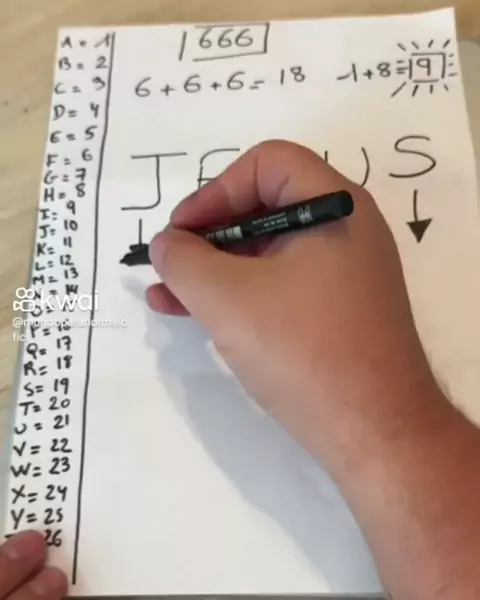 666
6 + 6 + 6 = 18
1 + 8 = 9
J E U S
A = 1
B = 2
C = 3
D = 4
E = 5
F = 6
G = 7
H = 8
I = 9
J = 10
K = 11
L = 12
M = 13
14
Q = 17
R = 18
S = 19
T = 20
U = 21
V = 22
W = 23
X = 24
Y = 25
26
kwai